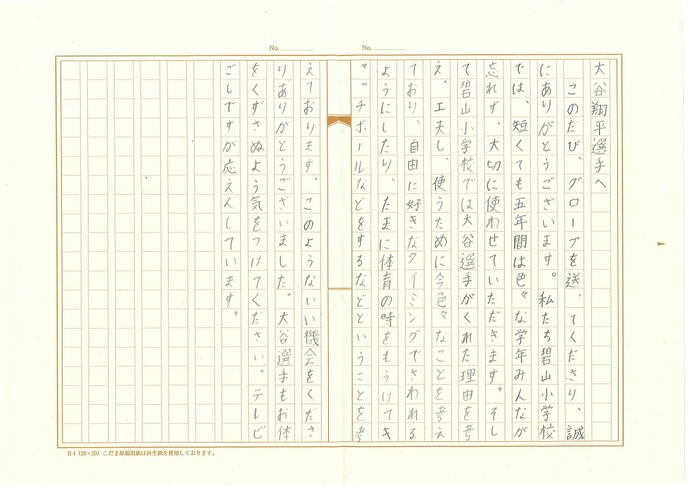 No.
No.
大谷翔平選手へ
このたび、グローブを送ってくださり、誠
にありがとうございます。私たち碧山小学校
では、短くても五年間は色々な学年みんなが
忘れず、大切に使わせていただきます。そし
て碧山小学校では大谷選手がくれた理由を考
え、工夫し、使うために今色々なことを考え
ており、自由に好きなタイミングでさわれる
ようにしたり、たまに体育の時をもうけてキ
ャッチボールなどをするなどということを考
えております。このようないい機会をくださ
りありがとうございました。大谷選手もお体
をくずさぬよう気をつけてください。テレビ
ごしですが応えんしています。
B4（20×20）こだま原稿用紙は再生紙を使用しております。